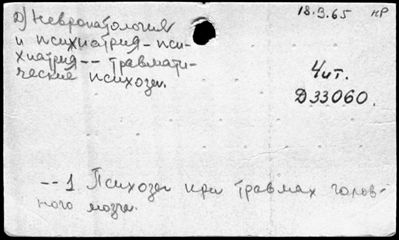 д) Невропатология
и психиатрия - пси-
хиатрия -- травмати-
ческие психозы.
18.9.65 кр
Чит.
Д33060.
-- 1 Психозы при травмах голов-
ного мозга.